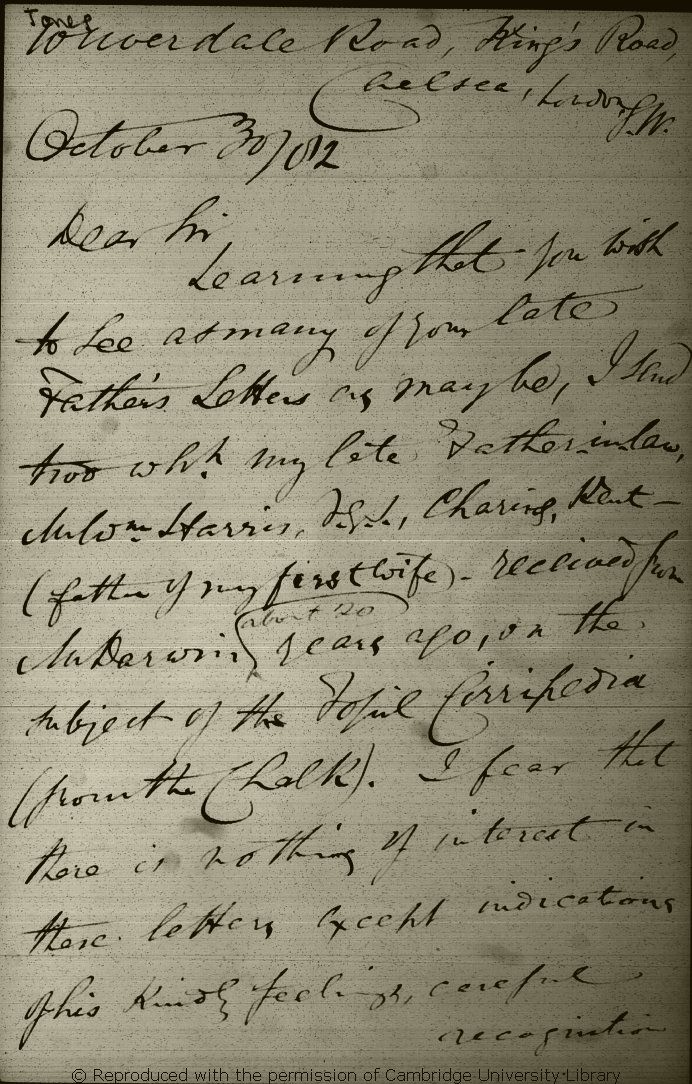 Jones
10 Uverdale Road, King's Road,
Chelsea, London,
S.W.
October 30/82
Dear Sir
Learning that you wish
to see as many of your late
Father's Letters as may be, I send
two wh.h my late Father-in-law,
Mr Wm Harris, F.G.S., Charing, Kent —
(father of my first wife) - received from
about 20
Mr Darwin, years ago, on the
subject of the Fossil Cirripedia
(from the Chalk). I fear that
there is nothing of interest in
these letters except indications
of his kindly feelings, careful
recognition
© Reproduced with the permission of Cambridge University Library